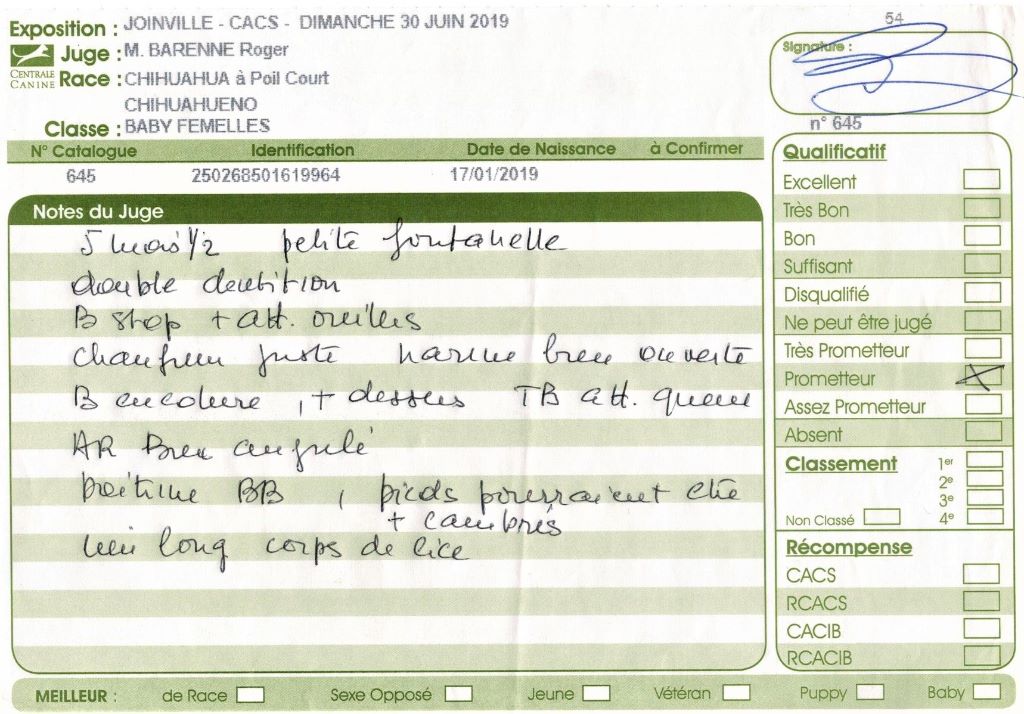 Exposition : JOINVILLE - CACS - DIMANCHE 30 JUIN 2019
54
Juge : M. BARENNE Roger
Signature :
CENTRALE CANINE
Race : CHIHUAHUA à Poil Court
CHIHUAHUENO
Classe : BABY FEMELLES
n° 645
N° Catalogue Identification Date de Naissance à Confirmer
645 250268501619964 17/01/2019
Notes du Juge
5 mois 1/2 petite fontanelle
double dentition
B stop + att. oreilles
chanfrein juste narine bien ouverte
B encolure , + dessus TB att. queue
AR Bien angulé
poitrine BB , pieds pourraient être
+ cambrés
long corps de lice
Qualificatif
Excellent
Très Bon
Bon
Suffisant
Disqualifié
Ne peut être jugé
Très Prometteur
Prometteur X
Assez Prometteur
Absent
Classement 1er
2e
3e
Non Classé 4e
Récompense
CACS
RCACS
CACIB
RCACIB
MEILLEUR : de Race Sexe Opposé Jeune Vétéran Puppy Baby